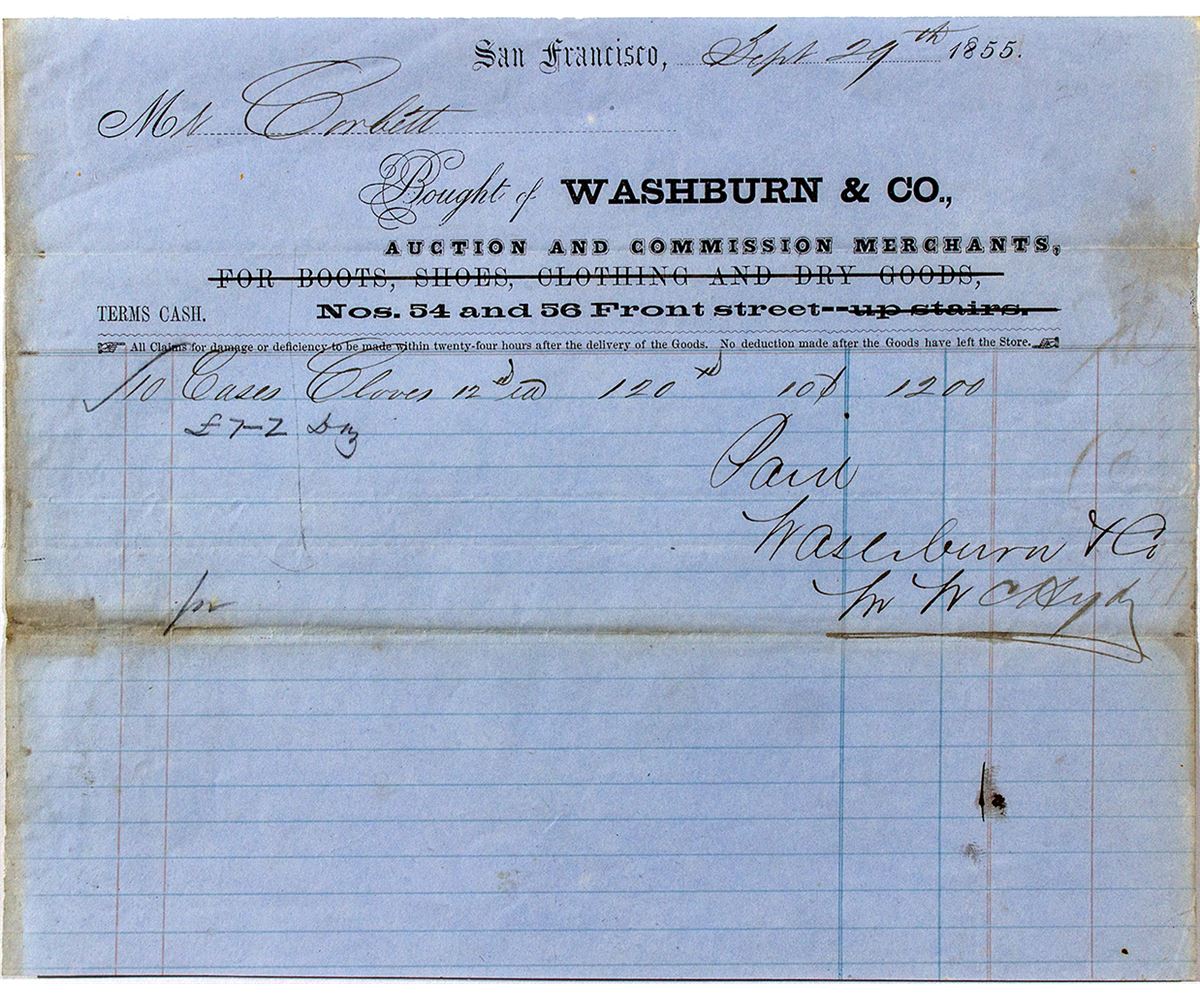 San Francisco, Sept 29th 1855.
Mr Corbett
Bought of WASHBURN & CO.,
AUCTION AND COMMISSION MERCHANTS,
FOR BOOTS, SHOES, CLOTHING AND DRY GOODS,
TERMS CASH. Nos. 54 and 56 Front street--up stairs.
All Claims for damage or deficiency to be made within twenty-four hours after the delivery of the Goods. No deduction made after the Goods have left the Store.
10 Cases Cloves 12 ea 120 10¢ 1200
£ 7-2
Paid
Washburn & Co